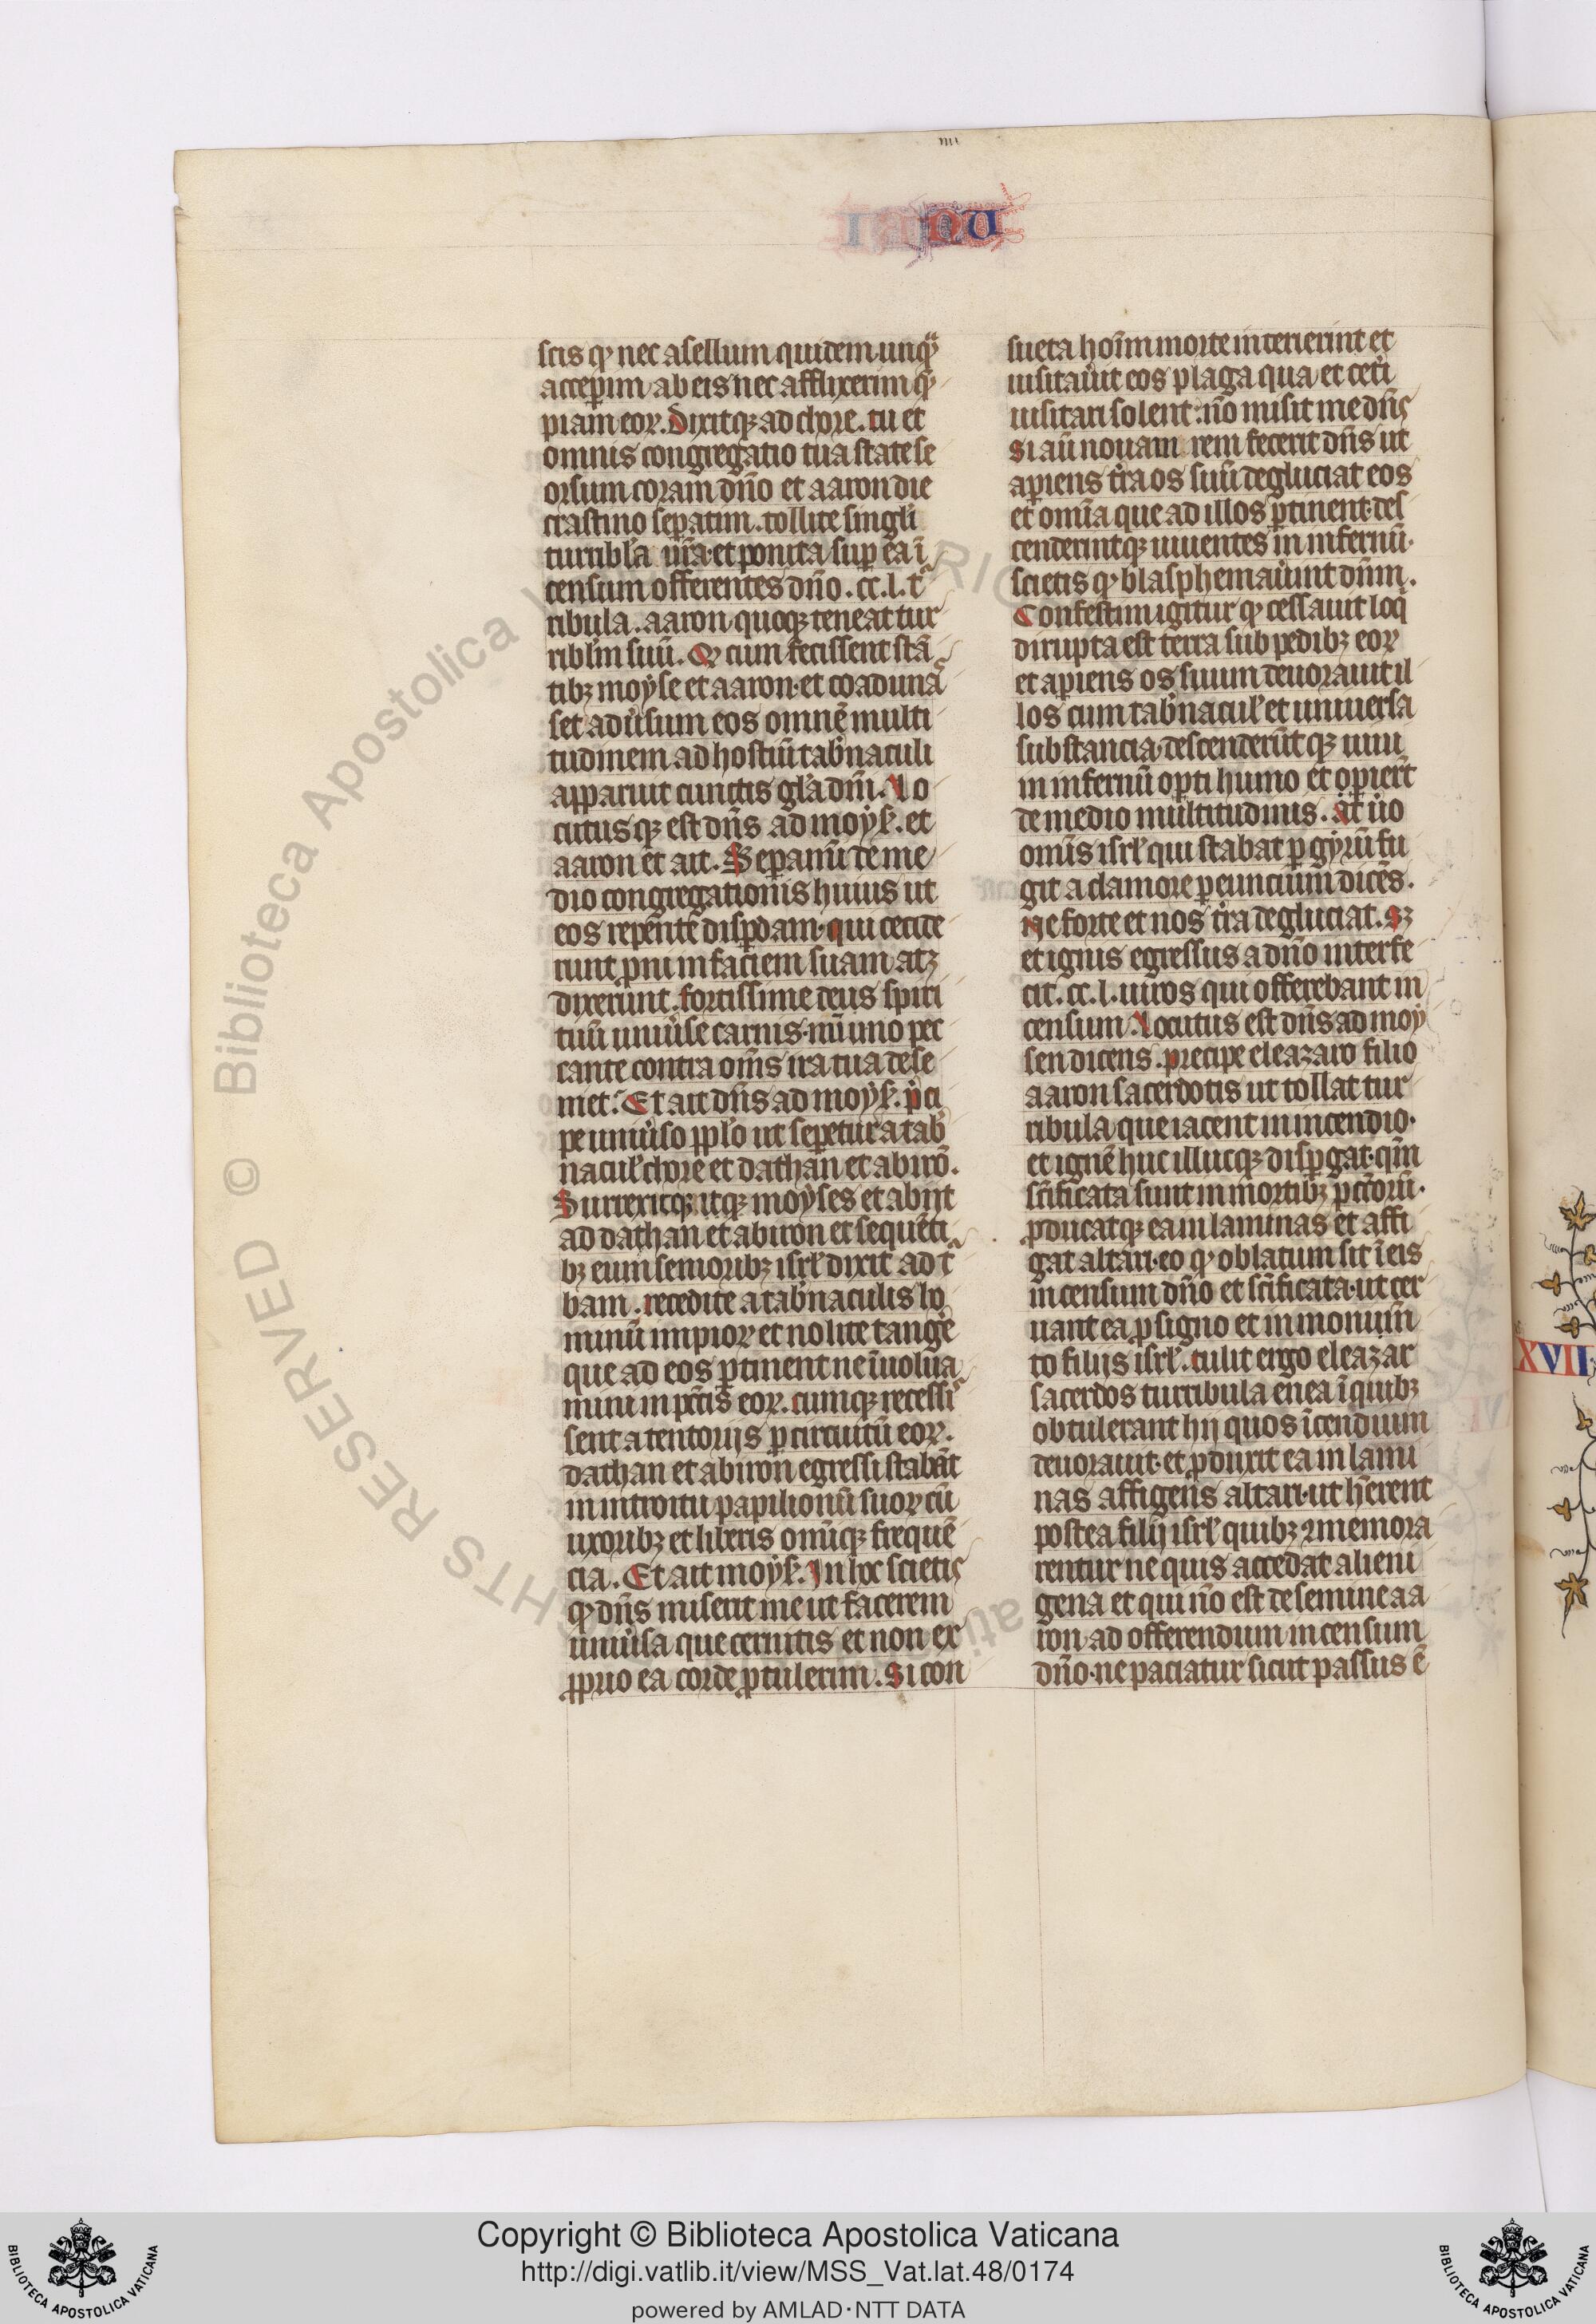 IIII
NU
scis qꝫ nec asellum quidem unqᷓ
acceꝑim ab eis nec afflixerim qͥs
piam eoꝝ. Dixitqꝫ ad chore. tu et
omnis congregatio tua state se
orsum coram dño et aaron die
crastino seꝑatim. tollite singl'i
turribl'a ur̃a. et ponita suꝑ ea ĩ
censum offerentes dño. cc. l. tᷣ
ribula. aaron quoqꝫ teneat tur
ribl'm suũ. Qꝫ cum fecissent stã
tibꝫ moyse et aaron. et coadunaᷤ
set adu'sum eos omnẽ multi
tudinem ad hostiũ tab'naculi
apparuit cunctis gl'a dñi. Lo
cutusqꝫ est dñs ad moyſ. et
aaron et ait. Seꝑamĩ de me
dio congregationis huius ut
eos repente disꝑdam. qui cecide
runt ꝓni in faciem suam atqꝫ
dixerunt. fortissime deus spiri
tuũ uniu'se carnis. nũ uno pec
cante contra om̃s ira tua dese
uiet. Et ait dñs ad moyſ. p̾ci
pe uniu'so ppl'o ut seꝑetur a tab'
nacul' chore et dathan et abirõ.
Surrexitqꝫ itqꝫ moyses et abiit
ad dathan et abiron et sequẽti
bꝫ eum senioribꝫ isrl' dixit ad tᷣ
bam. recedite a tab'naculis ho
minũ impioꝝ et nolite tang'e
que ad eos ꝑtinent ne ĩuolua
mini in pct̃is eoꝝ. cumqꝫ recessiᷤ
sent a tentoriis ꝑ circuitũ eoꝝ.
dathan et abiron egressi stabãt
in introitu papilionũ suoꝝ cũ
uxoribꝫ et liberis omĩqꝫ frequẽ
cia. Et ait moyſ. In hoc scietis
qꝫ dñs miserit me ut facerem
uniu'sa que cernitis et non ex
ꝓprio ea corde ꝓtulerim. Si con
sueta hoĩm morte interierint et
uisitau'it eos plaga qua et cet'i
uisitari solent. nõ misit me dñs
Si aũ nouam rem fecerit dñs ut
aꝑiens t'ra os suũ degluciat eos
et om̃ia que ad illos ꝑtinent. des
cenderintqꝫ uiuentes in infernũ.
scietis qꝫ blasphemau'unt dñm.
Confestim igitur qꝫ cessauit loqͥ
dirupta est terra sub pedibꝫ eoꝝ
et aꝑiens os suum deuorauit il
los cum tab'nacul' et uniuersa
substancia. descenderũtqꝫ uiui
in infernũ oꝑti humo et oꝑier̃t
de medio multitudinis. At u'o
om̃is isrl' qui stabat ꝑ gyrũ fu
git a clamore ꝑeuncium dicẽs.
Ne forte et nos t'ra degluciat. Sꝫ
et ignis egressus a dño interfe
cit. cc. l. uiros qui offerebant in
censum. Locutus est dñs ad moy
sen dicens. precipe eleazaro filio
aaron sacerdotis ut tollat tur
ribula que iacent in incendio.
et ignẽ huc illucqꝫ disꝑgat. qm̃
sc̃ificata sunt in mortibꝫ pccõrũ.
ꝓducatqꝫ ea in laminas et affi
gat altari. eo qꝫ oblatum sit ĩ eis
incensum dño et sc̃ificata. ut cer
nant ea ꝓ signo et in monum̃
to filiis isrl'. tulit ergo eleazar
sacerdos turribula enea ĩ quibꝫ
obtulerant hii quos ĩcendium
deuorauit. et ꝓduxit ea in lami
nas affigens altari. ut h'erent
postea filii isrl' quibꝫ ꝯmemora
rentur ne quis accedat alieni
gena et qui nõ est de semine aa
ron ad offerendum incensum
dño. ne paciatur sicut passus ẽ
XVII
Copyright © Biblioteca Apostolica Vaticana
http://digi.vatlib.it/view/MSS_Vat.lat.48/0174
powered by AMLAD·NTT DATA
BIBLIOTECA APOSTOLICA VATICANA
BIBLIOTECA APOSTOLICA VATICANA